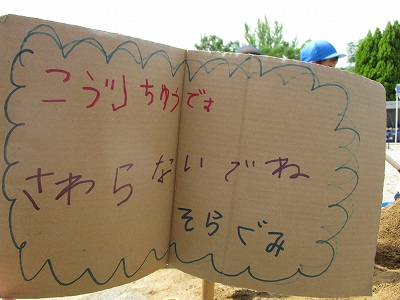 こうじちゅうです
さわらないでね
そらぐみ